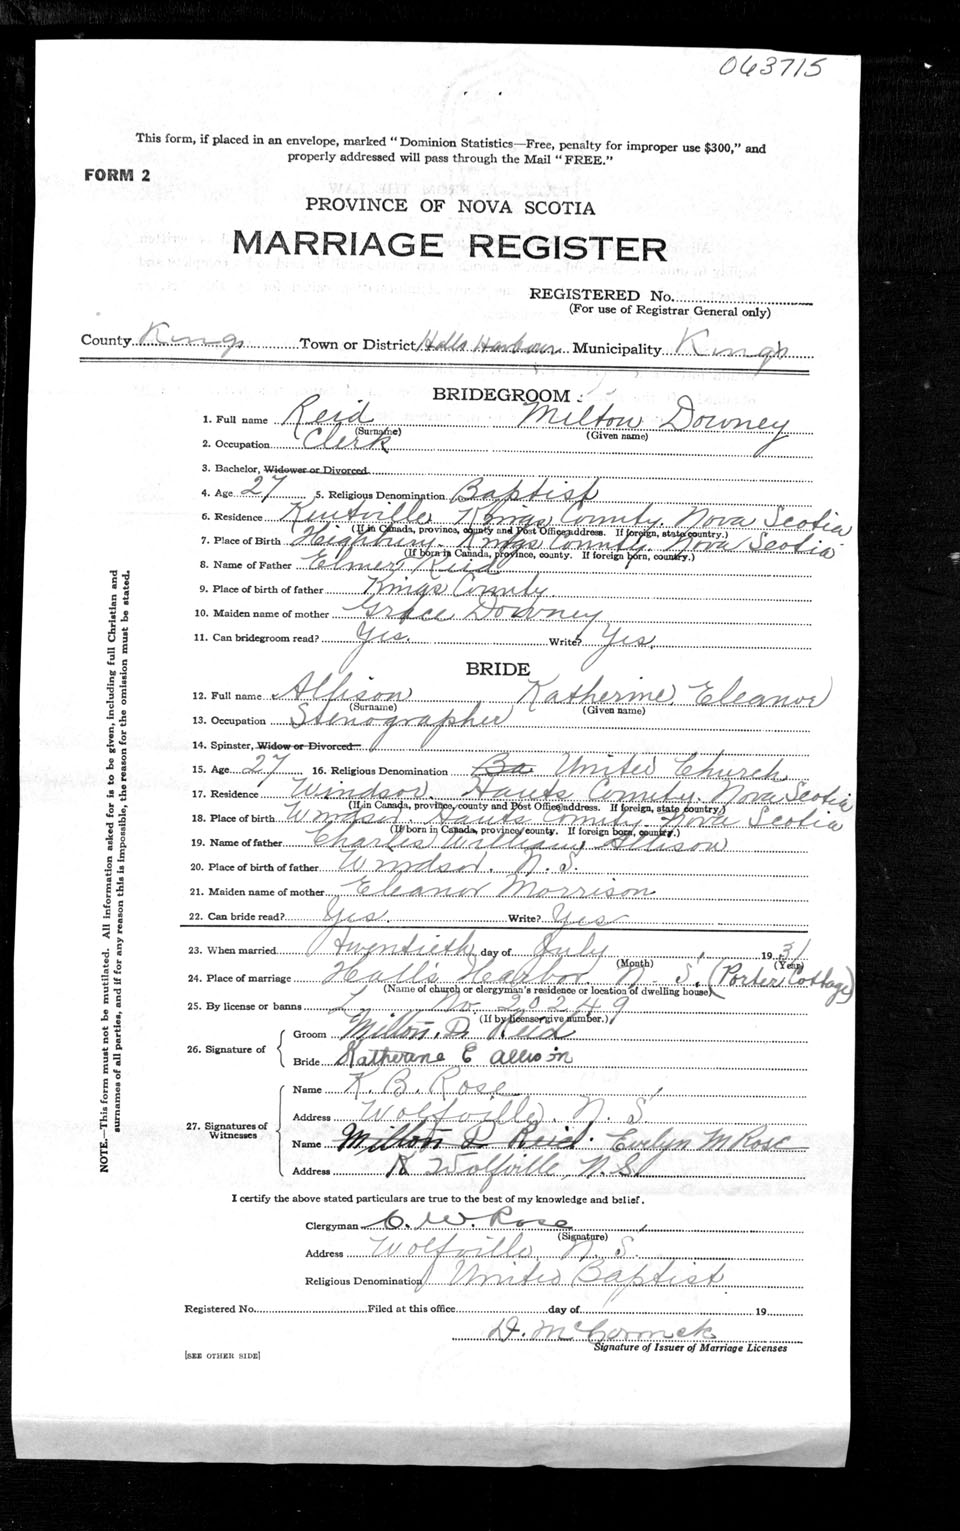 063715
This form, if placed in an envelope, marked "Dominion Statistics—Free, penalty for improper use $300," and
properly addressed will pass through the Mail "FREE."
FORM 2
PROVINCE OF NOVA SCOTIA
MARRIAGE REGISTER
REGISTERED No.
(For use of Registrar General only)
County Kings Town or District Halls Harbour Municipality Kings
BRIDEGROOM
1. Full name Reid Milton Downey
(Surname) (Given name)
2. Occupation Clerk
3. Bachelor, Widower or Divorced
4. Age 27 5. Religious Denomination Baptist
6. Residence Kentville Kings County, Nova Scotia
(If in Canada, province, county and Post Office address. If foreign, state country.)
7. Place of Birth Highbury, Kings County, Nova Scotia
(If born in Canada, province, county. If foreign born, country.)
8. Name of Father Elmer Reid
9. Place of birth of father Kings County
10. Maiden name of mother Grace Downey
11. Can bridegroom read? Yes. Write? Yes.
BRIDE
12. Full name Allison Katherine Eleanor
(Surname) (Given name)
13. Occupation Stenographer
14. Spinster, Widow or Divorced
15. Age 27 16. Religious Denomination Ba United Church
17. Residence Windsor, Hants County, Nova Scotia
(If in Canada, province, county and Post Office address. If foreign, state country.)
18. Place of birth Windsor, Hants County, Nova Scotia
(If born in Canada, province, county. If foreign born, country.)
19. Name of father Charles William Allison
20. Place of birth of father Windsor, N. S.
21. Maiden name of mother Eleanor Morrison
22. Can bride read? Yes. Write? Yes
23. When married Twentieth day of July 1931
(Month) (Year)
24. Place of marriage Hall's Harbor, N. S. (Porter Cottage)
(Name of church or clergyman's residence or location of dwelling house)
25. By license or banns L No. 20249
(If by license give number.)
26. Signature of
Groom Milton. D. Reid
Bride Katherine E Allison
27. Signatures of
Witnesses
Name K. B. Rose
Address Wolfville, N. S.
Name Milton D Reid. Evelyn M Rose
Address K Wolfville, N. S.
I certify the above stated particulars are true to the best of my knowledge and belief.
Clergyman C. W. Rose
(Signature)
Address Wolfville N. S.
Religious Denomination United Baptist
Registered No. Filed at this office day of 19
D. McCormick
Signature of Issuer of Marriage Licenses
[SEE OTHER SIDE]
NOTE.—This form must not be mutilated. All information asked for is to be given, including full Christian and
surnames of all parties, and if for any reason this is impossible, the reason for the omission must be stated.